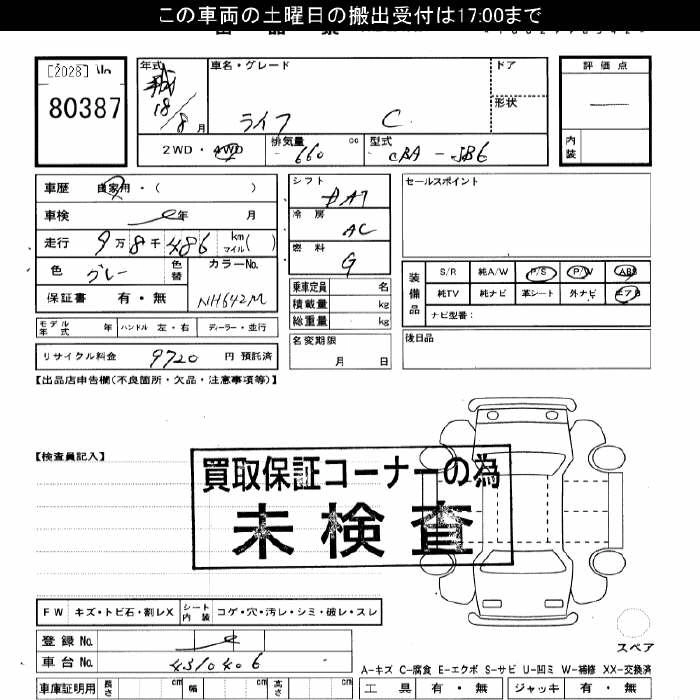 この車両の土曜日の搬出受付は17:00まで
[2028] No
80387
年式 車名・グレード ドア 評価点
18/8月 ライフ C 形状
2WD・4WD 排気量 660 cc 型式 CBA-JB6 内装
車歴 自家用・( ) シフト DAT セールスポイント
車検 年 月 冷房 AC
走行 9万8千486 km マイル( ) 燃料 G
色 グレー 色替 カラーNo. NH642M
保証書 有・無
乗車定員 名
積載量 kg
総重量 kg
装備品 S/R 純A/W P/S P/W ABS
純TV 純ナビ 革シート 外ナビ エアB
ナビ型番:
モデル年式 年 ハンドル 左・右 ディーラー・並行
名変期限 月 日
後日品
リサイクル料金 9720 円 預託済
【出品店申告欄(不良箇所・欠品・注意事項等)】
【検査員記入】
買取保証コーナーの為
未検査
FW キズ・トビ石・割レX シート内装 コゲ・穴・汚レ・シミ・破レ・スレ
登録No.
車台No. 4310406
スペア
A-キズ C-腐食 E-エクボ S-サビ U-凹ミ W-補修 XX-交換済
車庫証明用 長さ cm 幅 cm 高さ cm 工具 有・無 ジャッキ 有・無